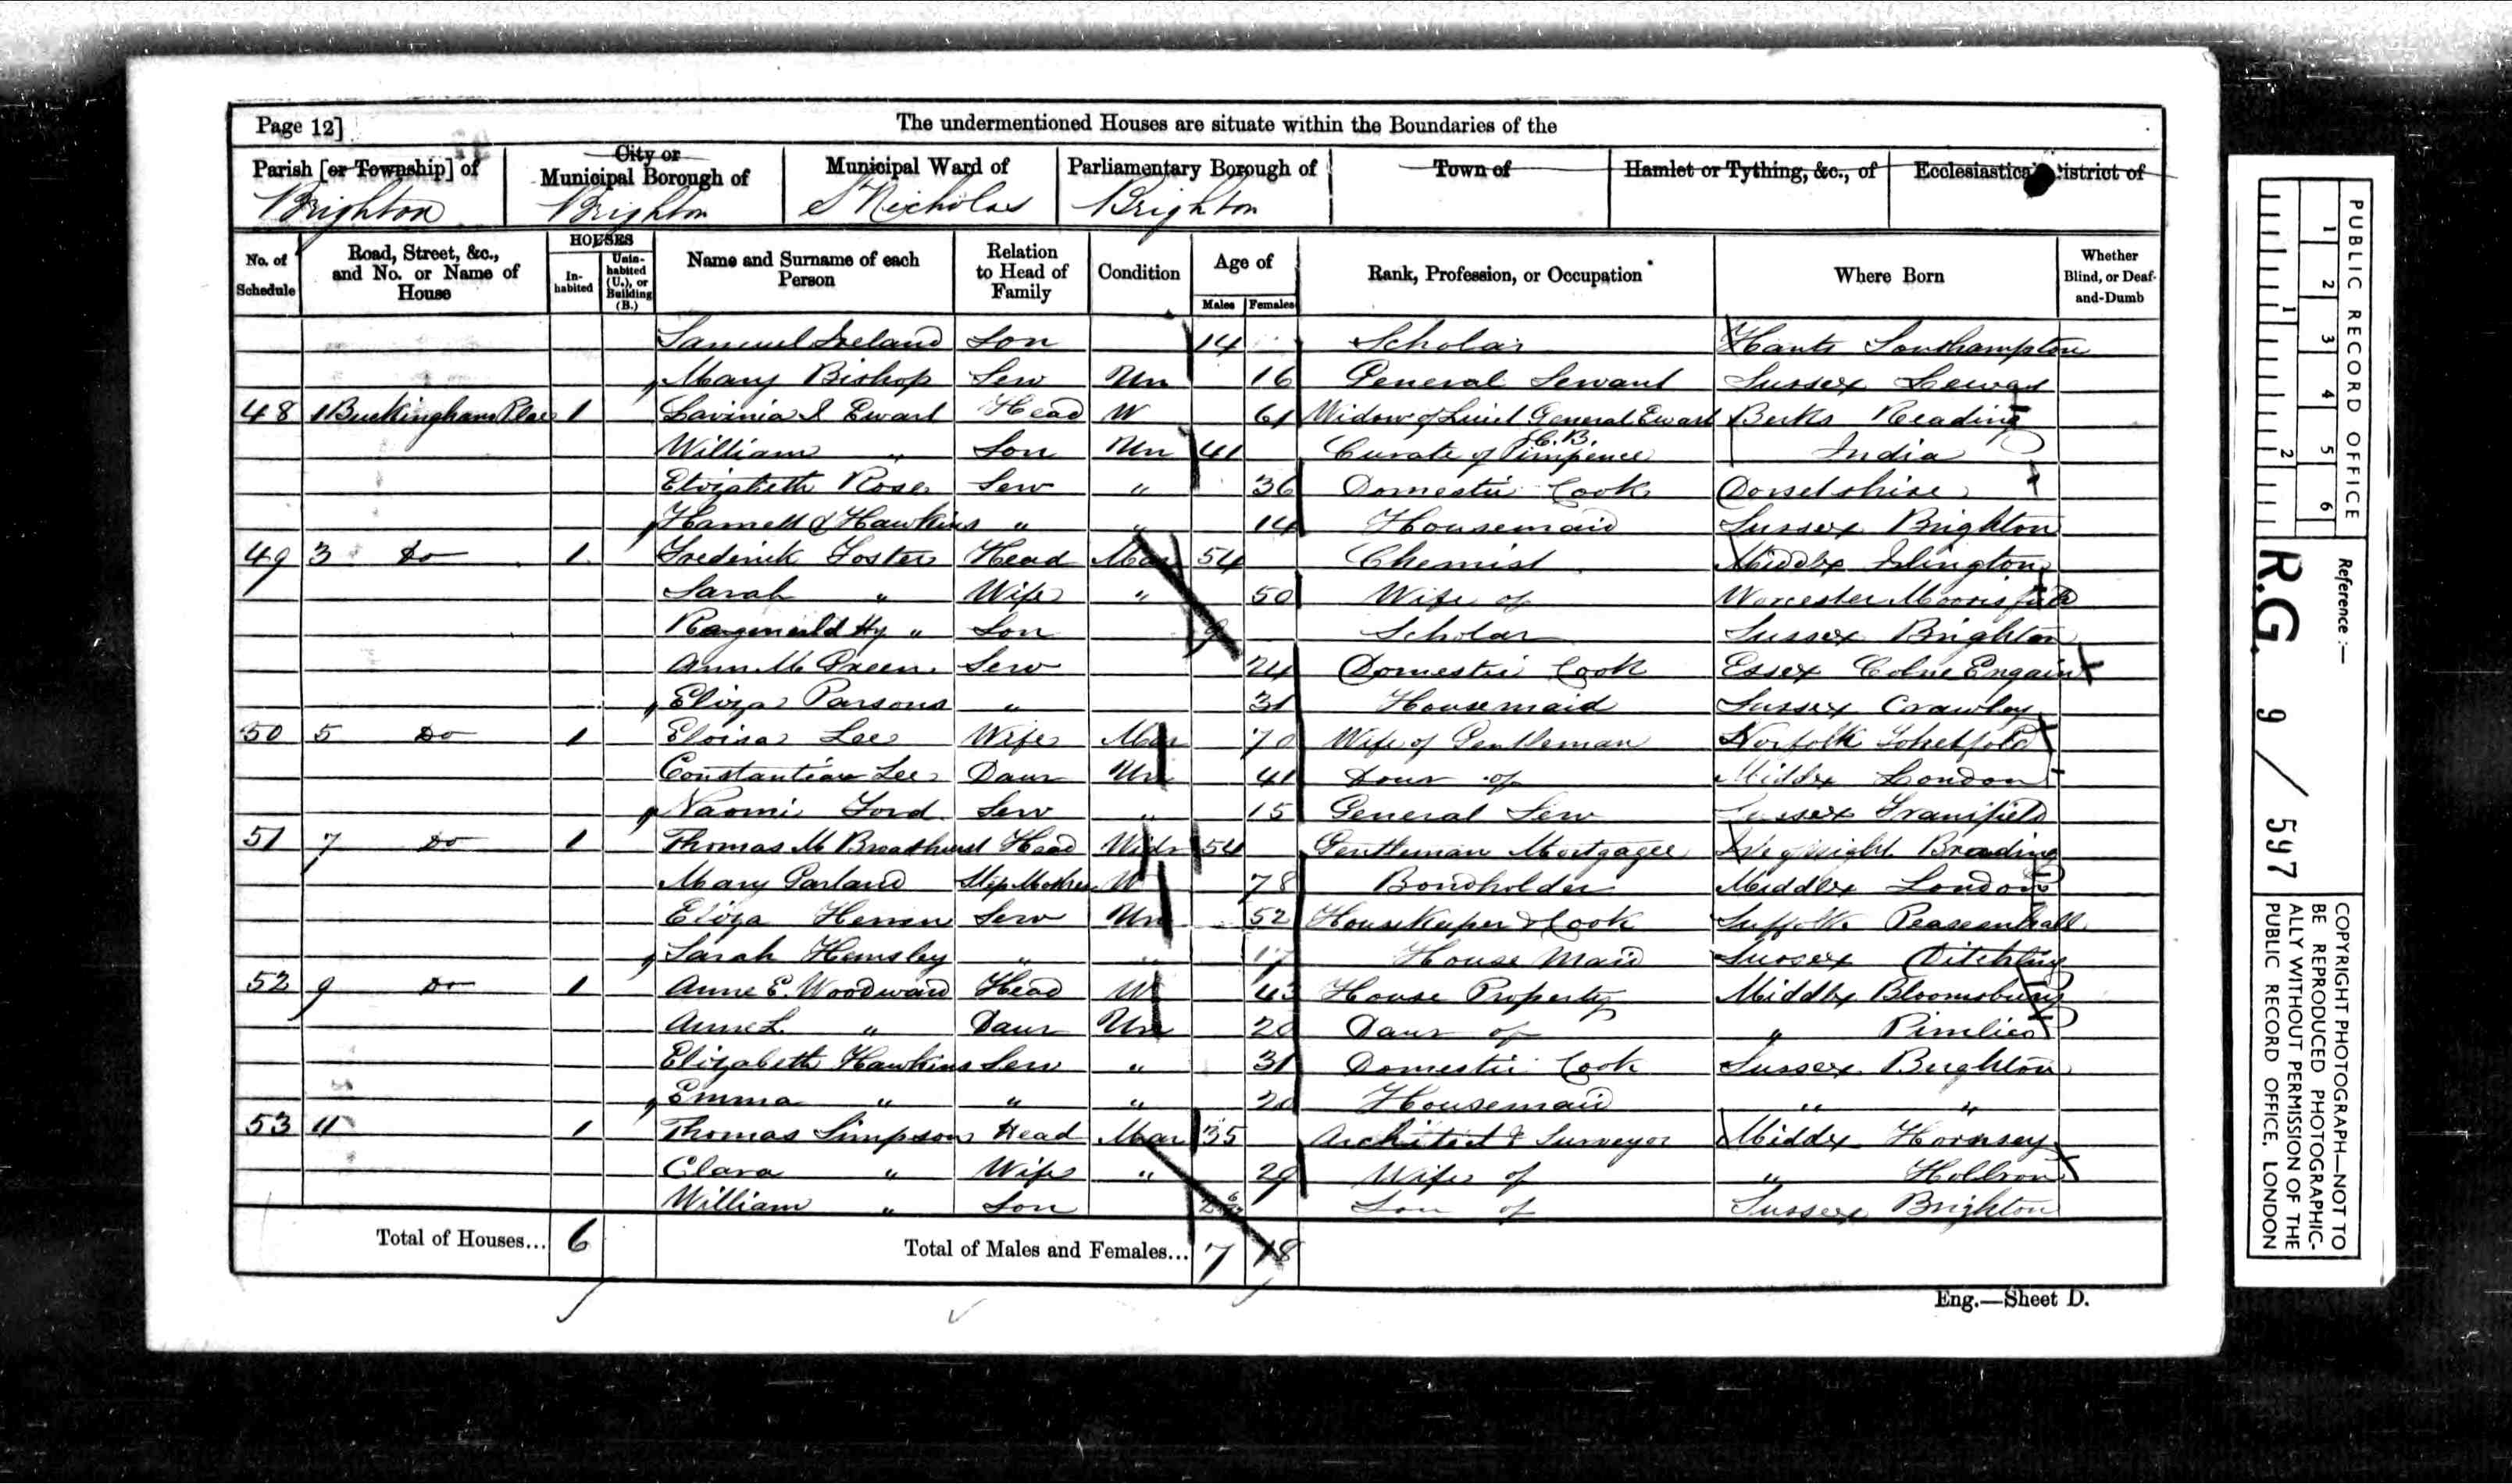 Page 12]
The undermentioned Houses are situate within the Boundaries of the
Parish [or Township] of
City or Municipal Borough of
Municipal Ward of
Parliamentary Borough of
Town of
Hamlet or Tything, &c., of
Ecclesiastical District of
Brighton Brighton St Nicholas Brighton
No. of Schedule
Road, Street, &c., and No. or Name of House
HOUSES
Inhabited
Uninhabited (U.), or Building (B.)
Name and Surname of each Person
Relation to Head of Family
Condition
Age of
Males Females
Rank, Profession, or Occupation
Where Born
Whether Blind, or Deaf-and-Dumb
Samuel Ireland Son 14 Scholar Hants Southampton
Mary Bishop Serv Un 16 General Servant Sussex Lewes
48 1 Buckingham Place 1 Lavinia I Ewart Head W 61 Widow of Lieut General Ewart C.B. Berks Reading
William " Son Un 41 Curate of Pimperne India
Elizabeth Rose Serv " 36 Domestic Cook Dorsetshire
Hawkins " " 14 Housemaid Sussex Brighton
49 3 Do 1 Frederick Foster Head Mar 54 Chemist Middx Islington
Sarah " Wife " 50 Wife of Worcester
Hy " Son 9 Scholar Sussex Brighton
Ann M Green Serv 24 Domestic Cook Essex Colne Engain
Eliza Parsons " 31 Housemaid Sussex Crawley
50 5 Do 1 Eloisa Lee Wife Mar 70 Wife of Gentleman Norfolk
Constantia Lee Daur Un 41 Daur of Middx London
Naomi Ford Serv " 15 General Serv Sussex Framfield
51 7 Do 1 Thomas M Broadhurst Head Widr 54 Gentleman Mortgagee Isle of Wight Brading
Mary Garland Step Mother W 78 Bondholder Middlx London
Eliza Serv Un 52 Housekeeper & Cook Suffolk Peasenhall
Sarah Hemsley " " 17 House Maid Sussex Ditchling
52 9 Do 1 Anne E. Woodward Head W 43 House Property Middlx Bloomsbury
Anne L. " Daur Un 20 Daur of " Pimlico
Elizabeth Hawkins Serv " 31 Domestic Cook Sussex Brighton
Emma " " " 20 Housemaid " "
53 11 1 Thomas Simpson Head Mar 35 Architect & Surveyor Middx Hornsey
Clara " Wife " 29 Wife of " Holborn
William " Son Son of Sussex Brighton
Total of Houses... 6
Total of Males and Females... 7 18
Eng.—Sheet D.
PUBLIC RECORD OFFICE
1 2 3 4 5 6
1 2
Reference :—
R.G. 9 / 597
COPYRIGHT PHOTOGRAPH—NOT TO BE REPRODUCED PHOTOGRAPHICALLY WITHOUT PERMISSION OF THE PUBLIC RECORD OFFICE, LONDON